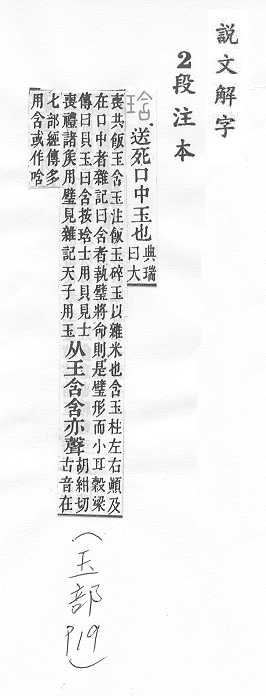 說文解字
2段注本
琀 送死口中玉也 典瑞
曰大
喪共飯玉含玉注飯玉碎玉以雜米也含玉柱左右顚及
在口中者雜記曰含者執璧將命則是璧形而小耳榖梁
傳曰貝玉曰含按琀士用貝見士
喪禮諸矦用璧見雜記天子用玉
从王含含亦聲
胡紺切
古音在
七部經傳多
用含或作唅
(玉部
P19)